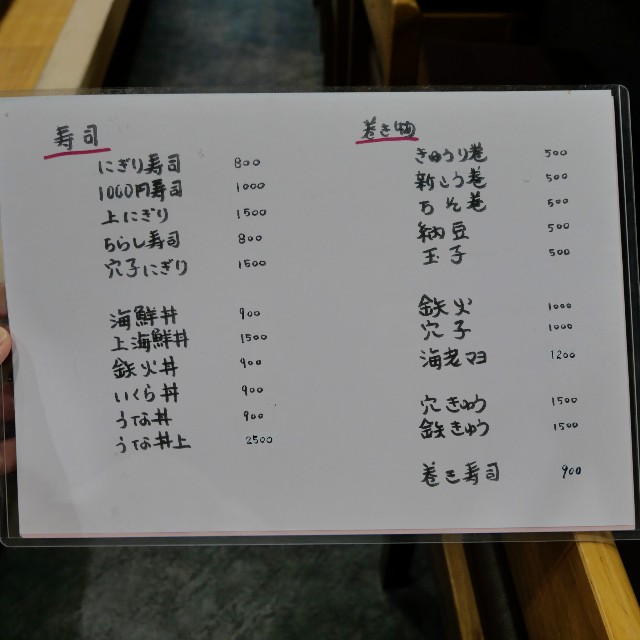 寿司
にぎり寿司 800
1000円寿司 1000
上にぎり 1500
ちらし寿司 800
穴子にぎり 1500
海鮮丼 900
上海鮮丼 1500
鉄火丼 900
いくら丼 900
うな丼 900
うな丼上 2500
巻き物
きゅうり巻 500
新こう巻 500
しそ巻 500
納豆 500
玉子 500
鉄火 1000
穴子 1000
海老マヨ 1200
穴きゅう 1500
鉄きゅう 1500
巻き寿司 900